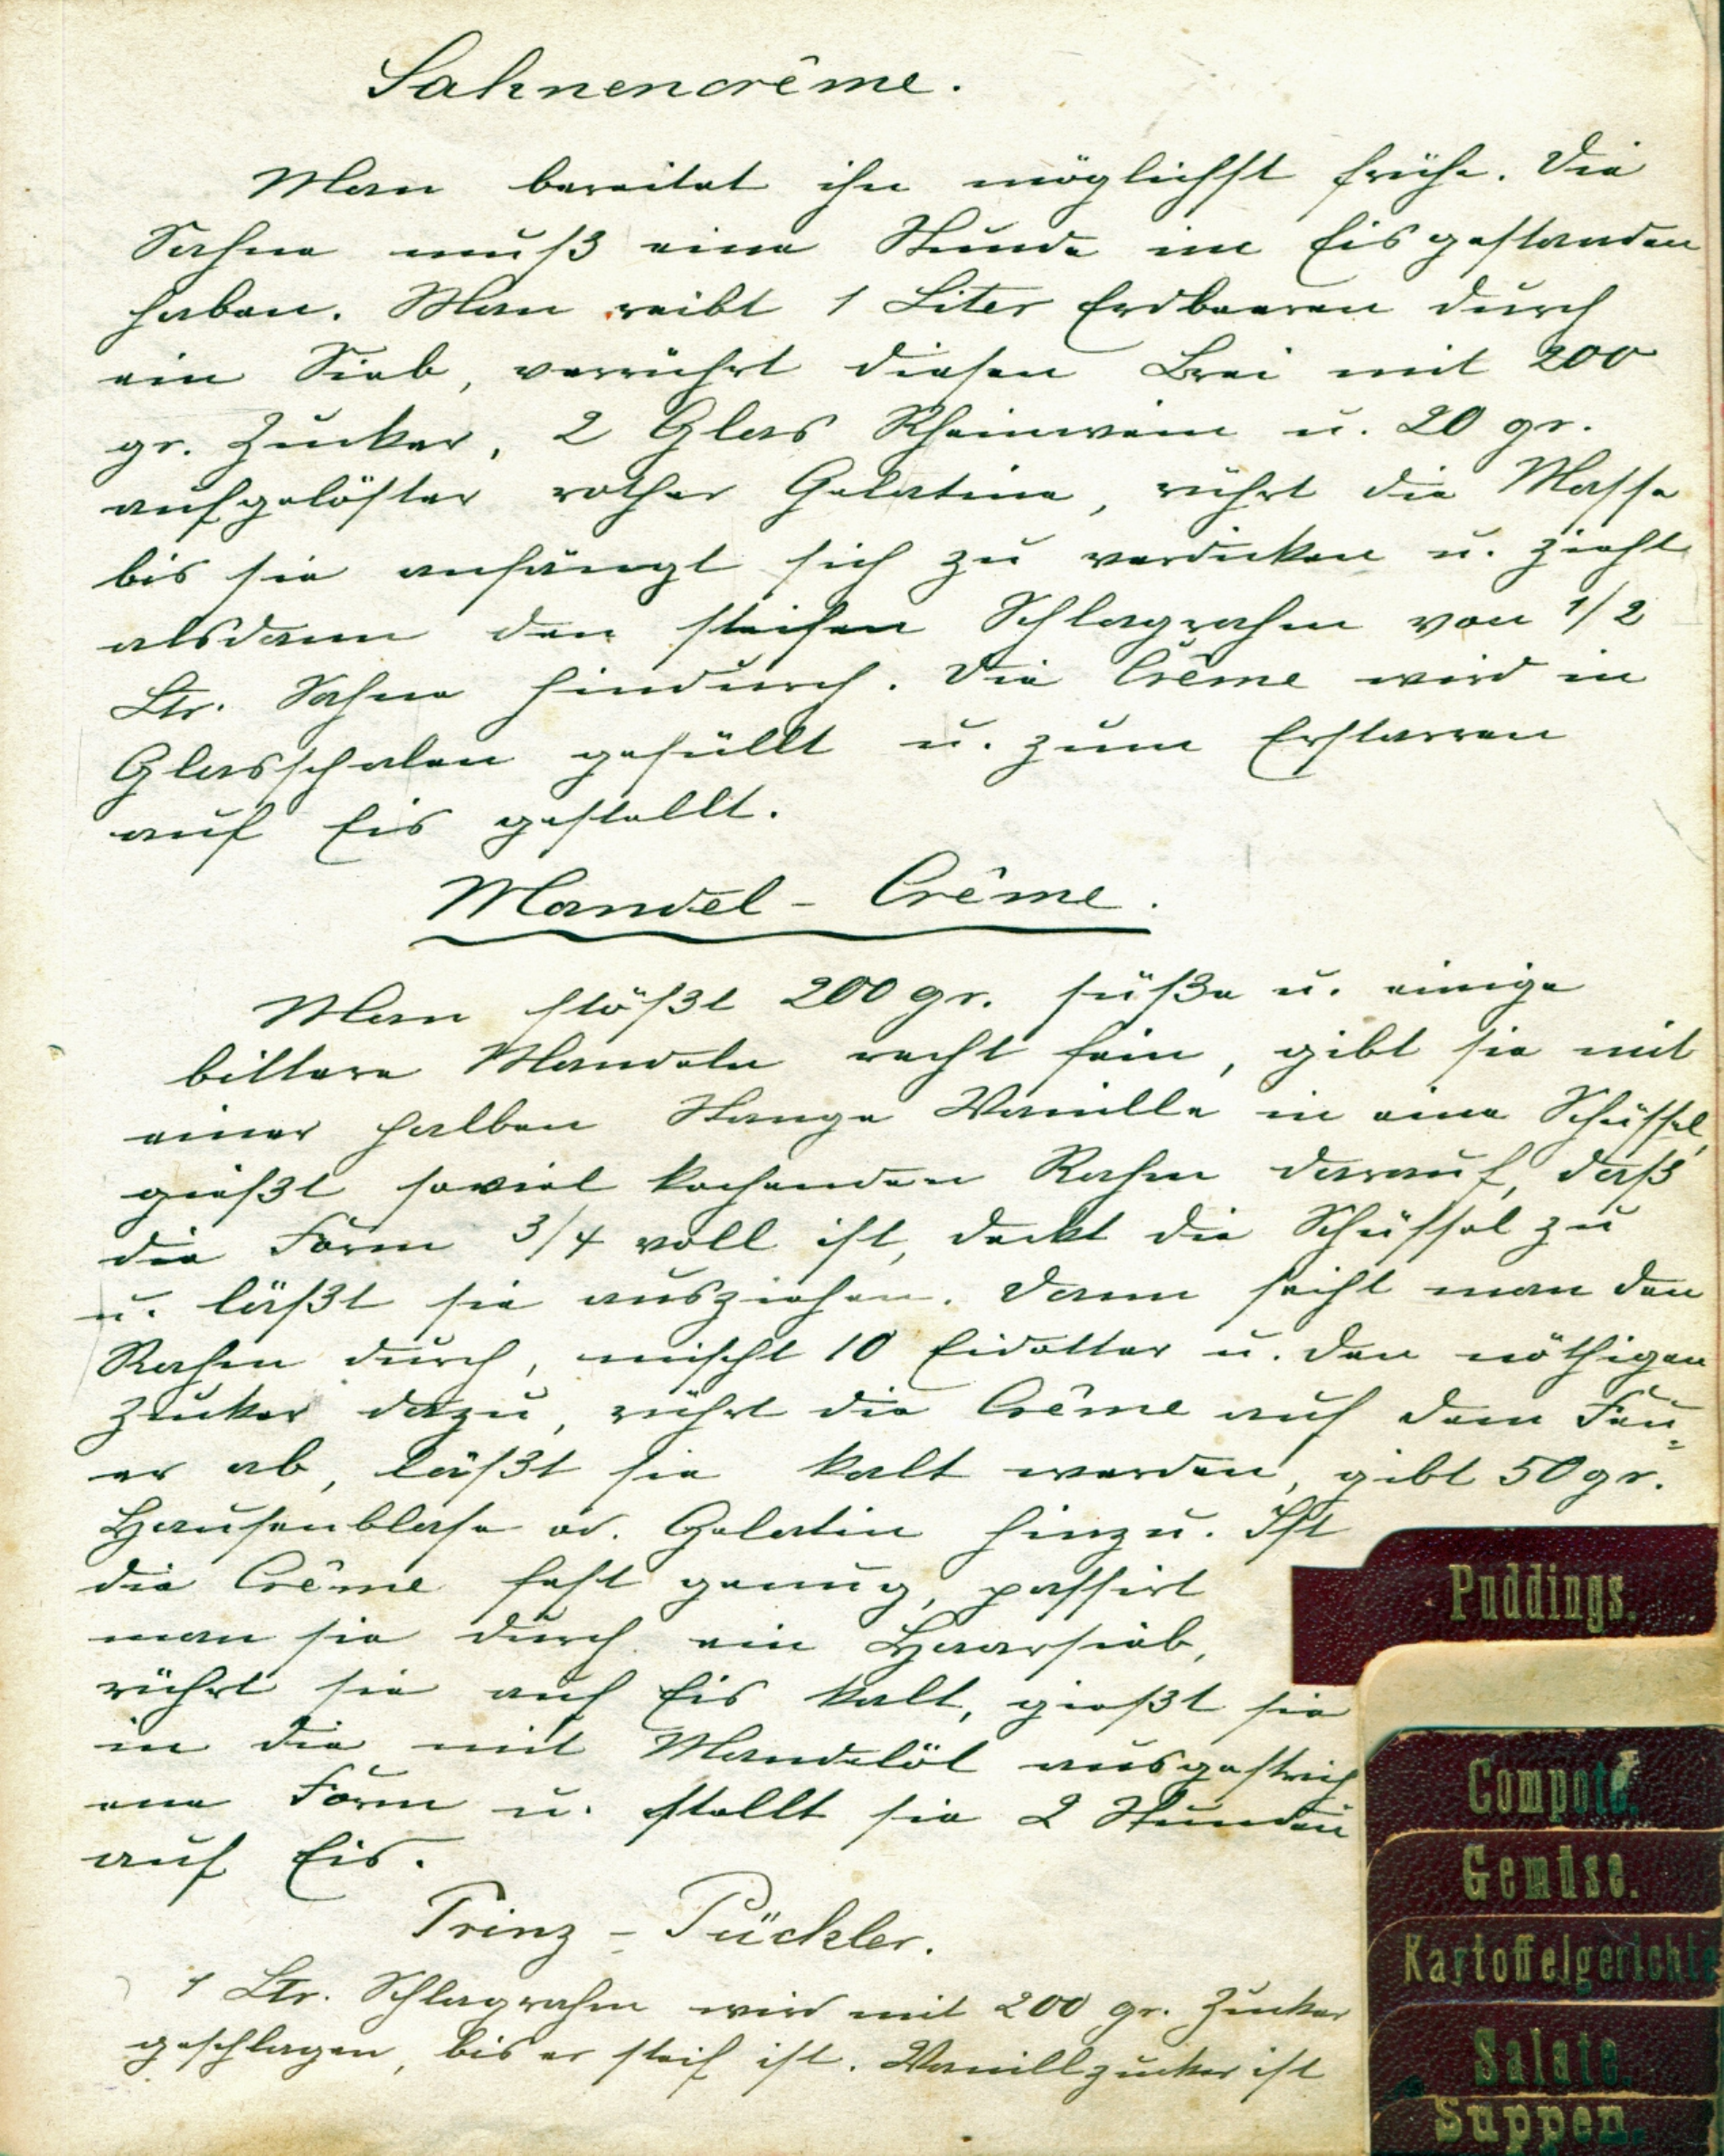 Sahnencrême.
Man bereitet ihn möglichst frühe. Die
Sahne muß eine Stunde im Eis gestanden
haben. Man reibt 1 Liter Erdbeeren durch
ein Sieb, verrührt diesen Brei mit 200
gr. Zucker, 2 Glas Rheinwein u. 20 gr.
aufgelöster rother Gelatine, rührt die Masse
bis sie anfängt sich zu verdicken u. zieht
alsdann den steifen Schlagrahm von 1/2
Ltr. Sahne hindurch. Die Crême wird in
Glasschalen gefüllt u. zum Erstarren
auf Eis gestellt.
Mandel - Crême.
Man stößt 200 gr. süße u. einige
bittere Mandeln recht fein, gibt sie mit
einer halben Stange Vanille in eine Schüssel,
gießt soviel kochenden Rahm darauf, daß
die Form 3/4 voll ist, deckt die Schüssel zu
u. läßt sie ausziehen. Dann seiht man den
Rahm durch, mischt 10 Eidotter u. den nöthigen
Zucker dazu, rührt die Crême auf dem Feu=
er ab, läßt sie kalt werden, gibt 50 gr.
Hausenblase od. Gelatin hinzu. Ist
die Crême fest genug, passirt
man sie durch ein Haarsieb,
rührt sie auf Eis kalt, gießt sie
in die mit Mandelöl ausgestrich
ene Form u. stellt sie 2 Stunden
auf Eis.
Prinz - Pückler.
1 Ltr. Schlagrahm wird mit 200 gr. Zucker
geschlagen, bis er steif ist. Vanillzucker ist
Puddings.
Compote.
Gemüse.
Kartoffelgerichte
Salate.
Suppen.